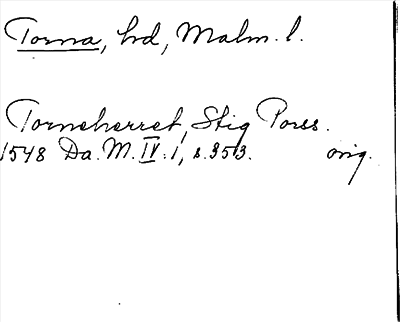 Torna, hd, Malm. l.
Torneherret, Stig Porss.
1548 Da. M. IV: 1, s. 353. orig.